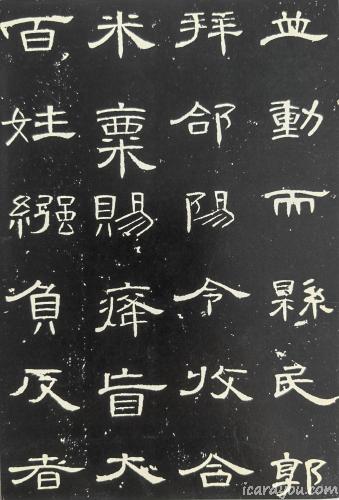 並動而縣民郭
拜郃陽令收合
米粟賜癃盲大
百姓繈負反者
icarayou.com